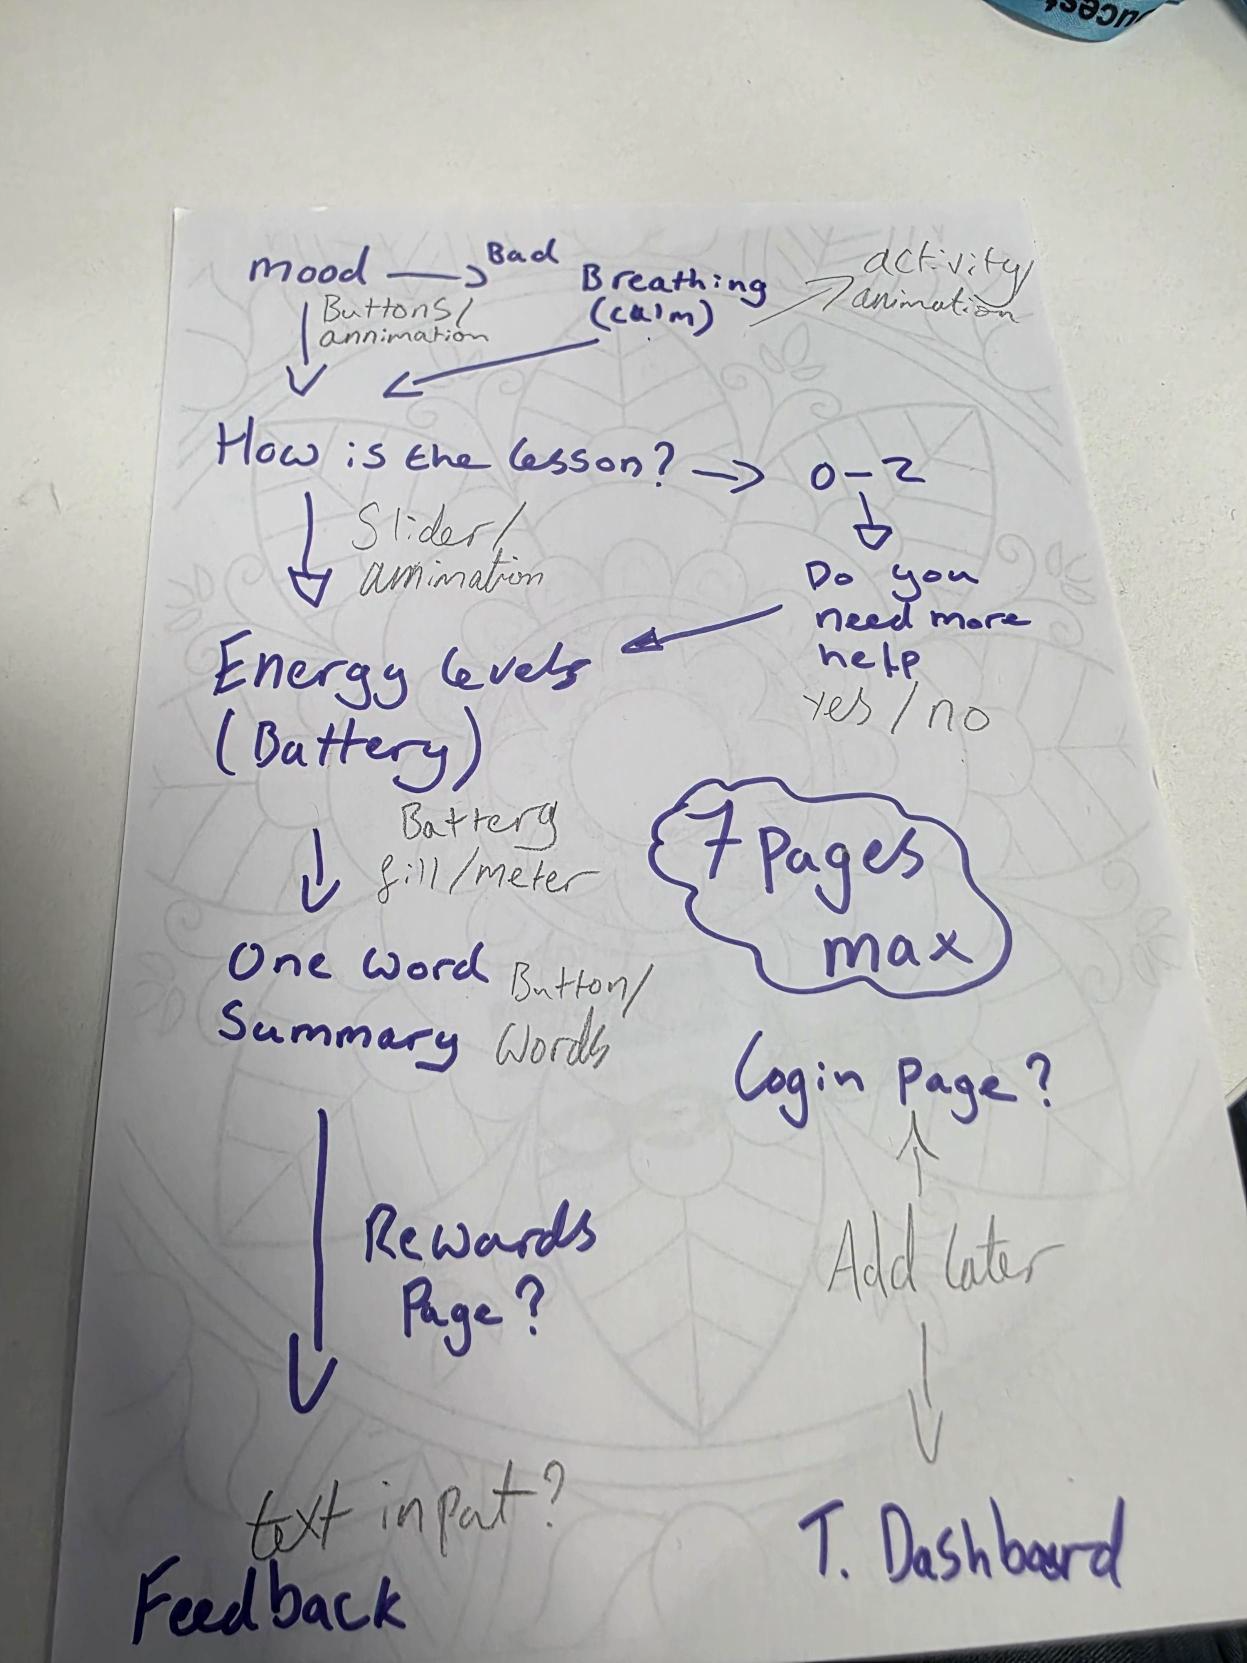 mood → Bad
Breathing
(calm)
activity/
animation
Buttons/
annimation
How is the lesson? → 0-2
Slider/
annimation
Do you
need more
help
yes/no
Energy levels
(Battery)
Battery
fill/meter
7 Pages
max
One word
Summary
Button/
Words
Login Page?
Rewards
Page?
Add later
text input?
Feedback
T. Dashboard